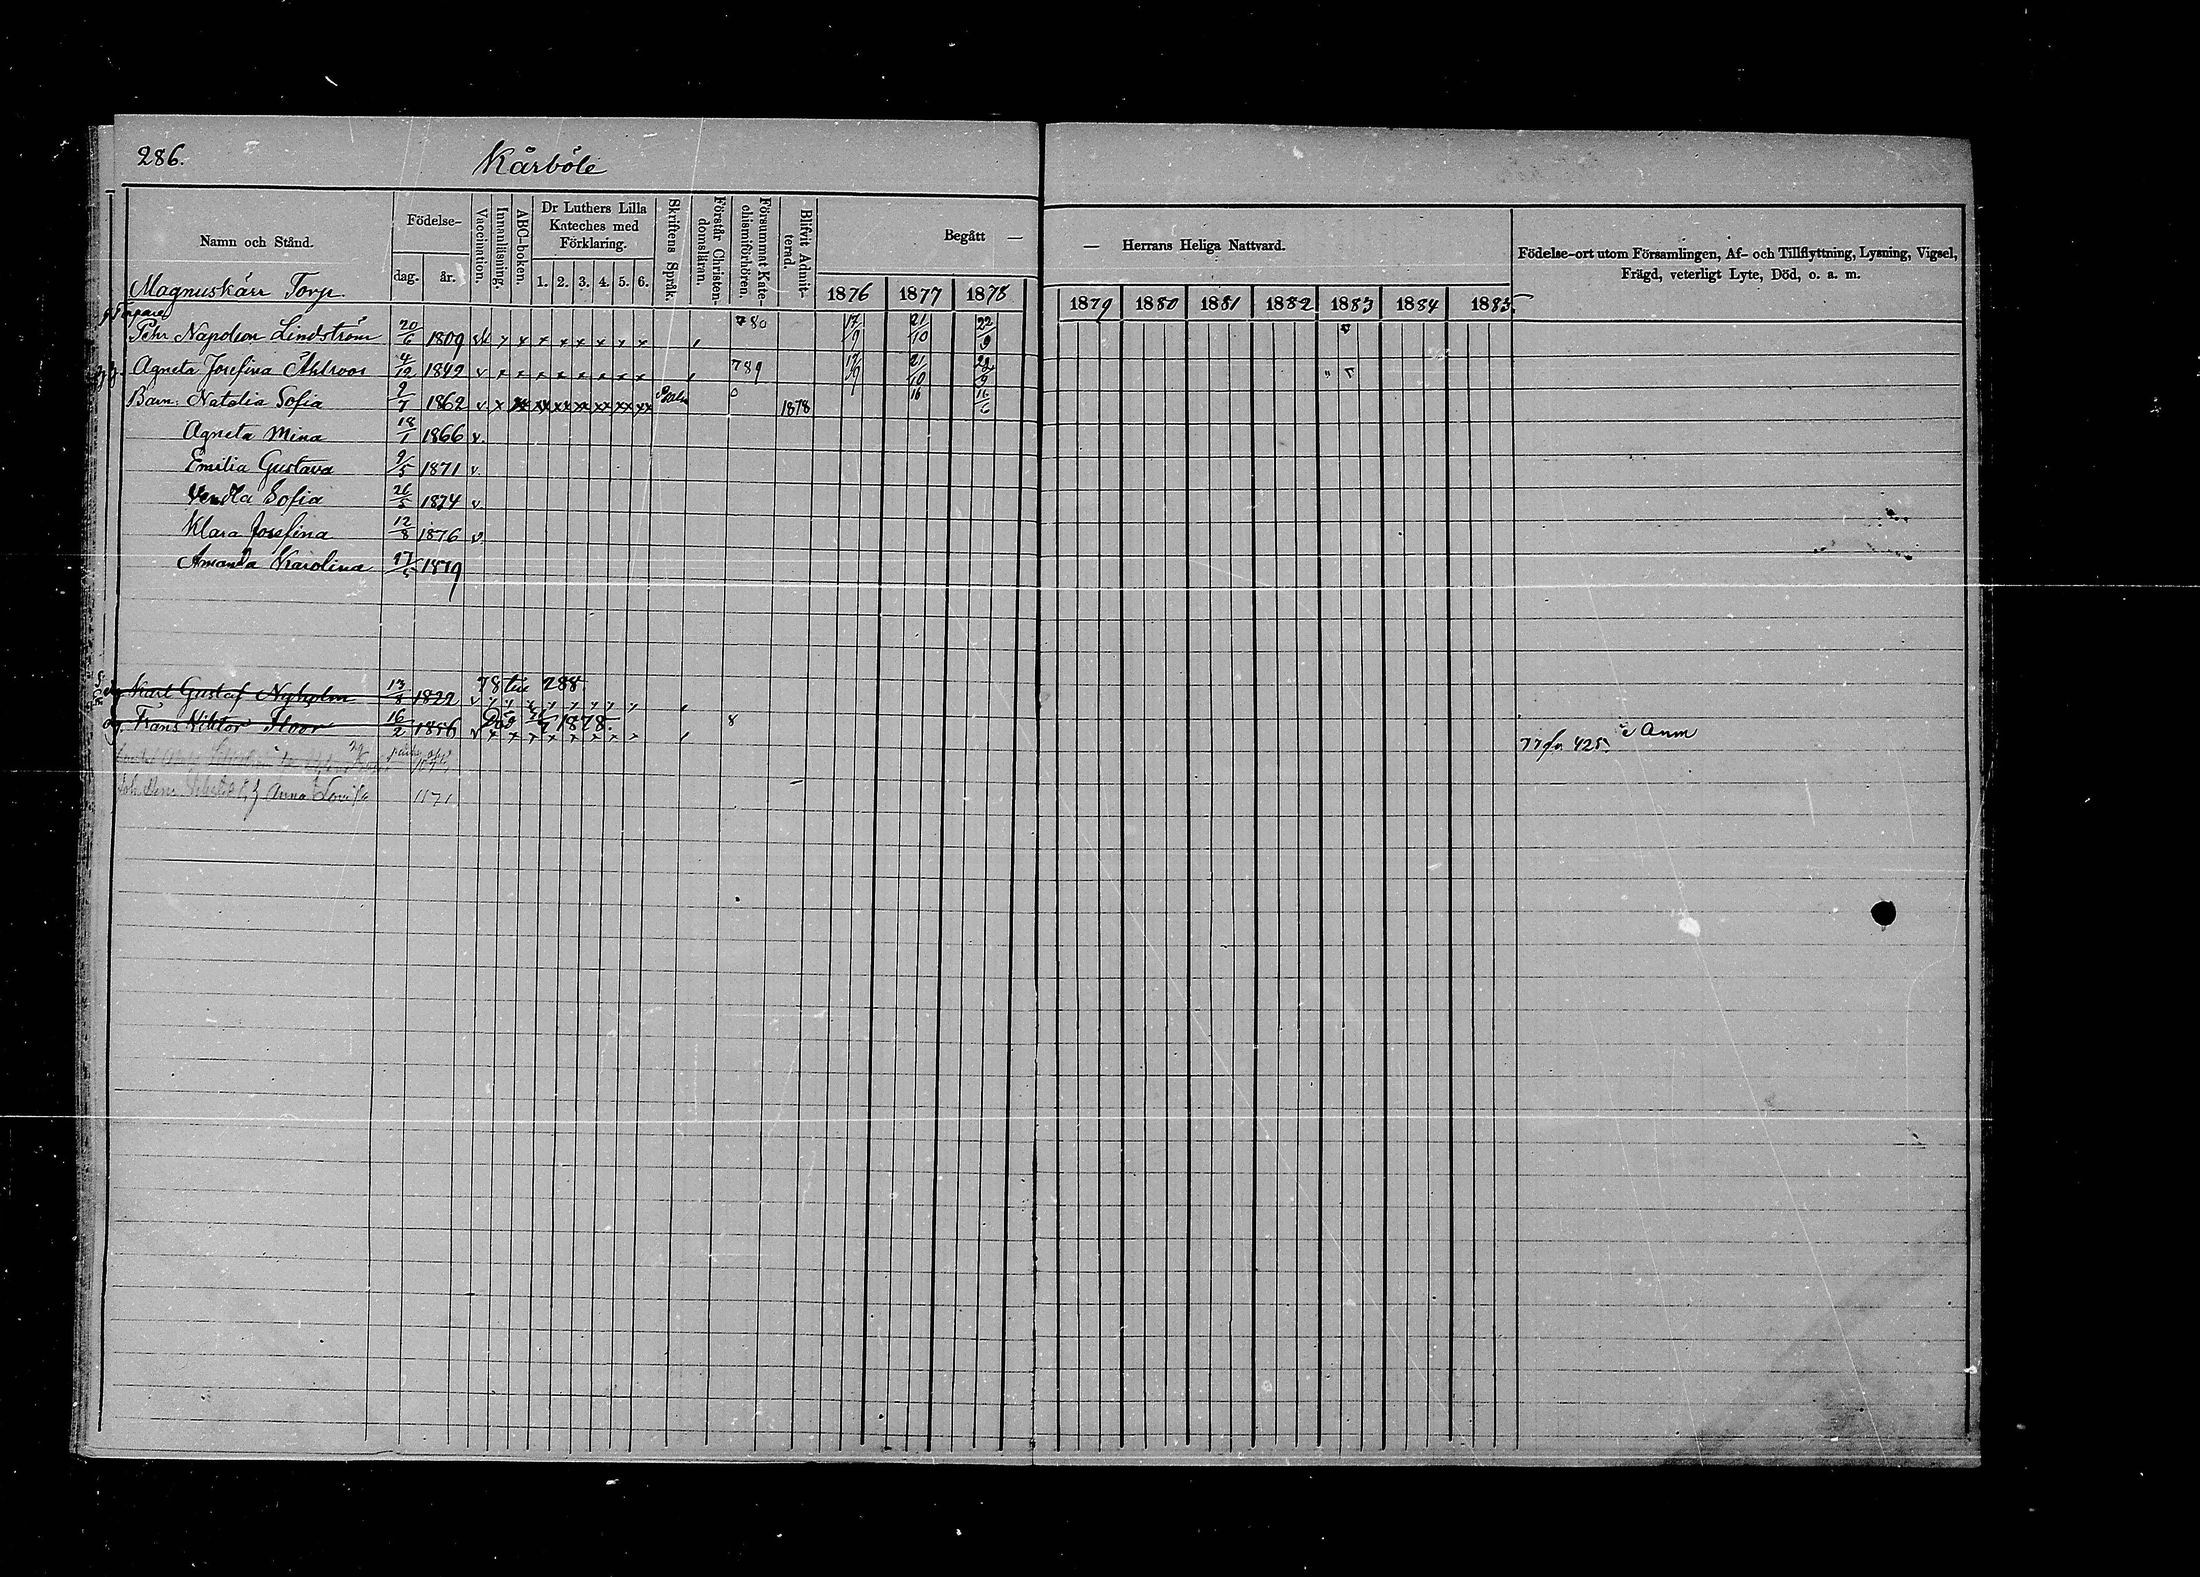 286.
Kårböle
Namn och Stånd.
Födelse-
dag.
år.
Vaccination.
Innanläsning.
ABC-boken.
Dr Luthers Lilla
Kateches med
Förklaring.
1. 2. 3. 4. 5. 6.
Skriftens Språk.
Förstår Christen-
domsläran.
Försummat Kate-
chismiförhören.
Blifvit Admit-
terad.
Begått —
1876 1877 1878
— Herrans Heliga Nattvard.
1879 1880 1881 1882 1883 1884 1885
Födelse-ort utom Församlingen, Af- och Tillflyttning, Lysning, Vigsel,
Frägd, veterligt Lyte, Död, o. a. m.
Magnuskärr Torp.
Pehr Napoleon Lindström 20/6 1809 x x x x x x x x 780 17/9 21/10 22/9
Agneta Josefina Åhlroos 4/12 1842 v x x x x x x x x 789 17/9 21/10 22/9
Barn: Natalia Sofia 2/7 1862 v x xx xx xx xx xx xx 0 1878 16 16/6
Agneta Mina 18/1 1866 v.
Emilia Gustava 9/5 1871 v.
Vendla Sofia 26/5 1874 v
Klara Josefina 12/8 1876 v.
Amanda Karolina 17/5 1879
Karl Gustaf Nyholm 13/8 1822 v 78 till 288.
Frans Viktor Floor 16/2 1856 v Död 1878. 8
77 fr. 425. Anm
Anna Lovisa